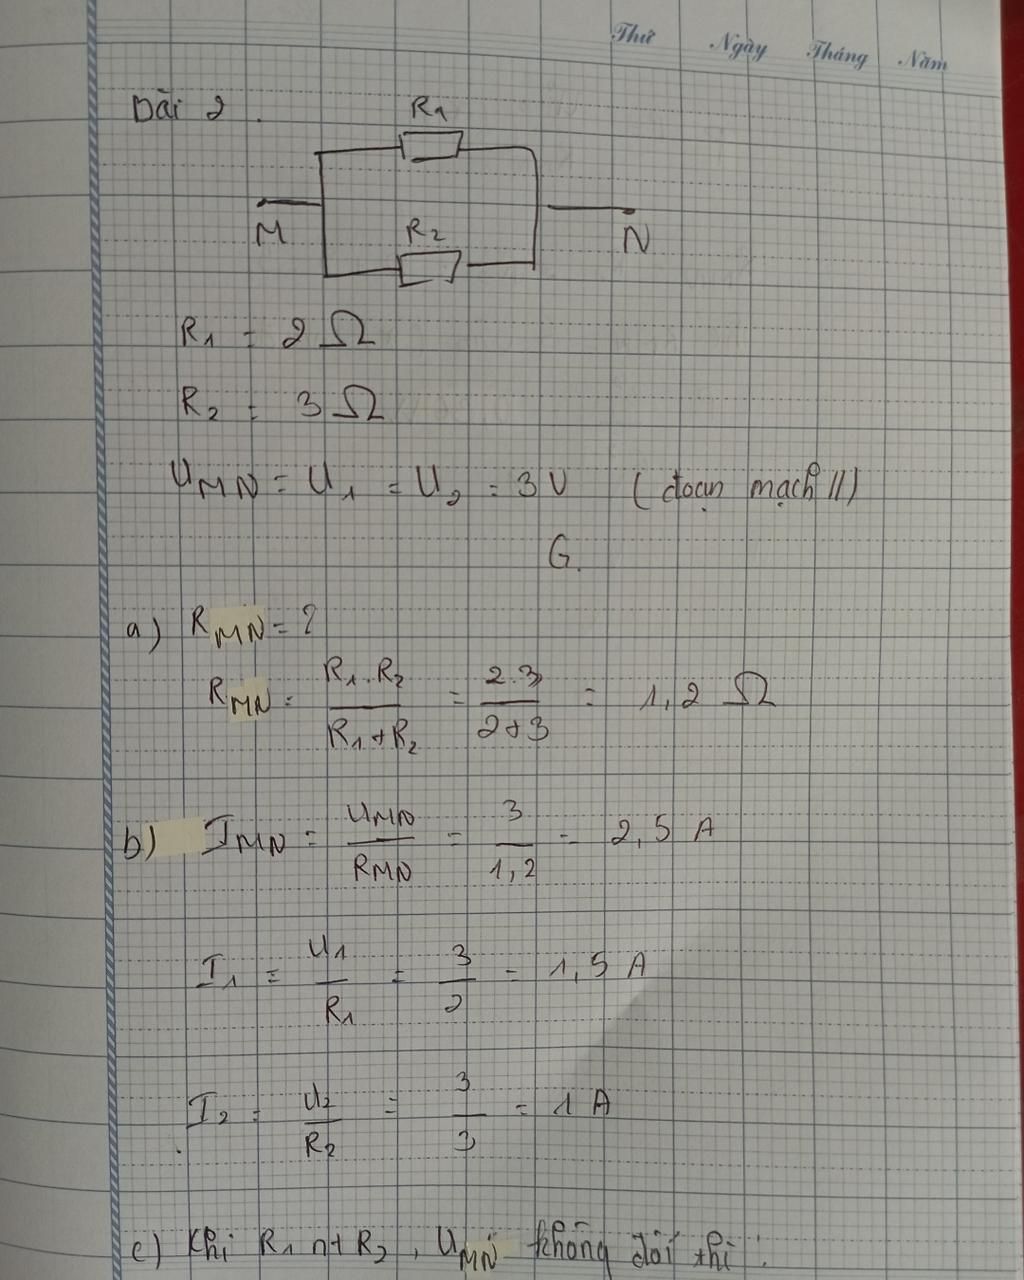 Thứ Ngày Tháng Năm
Bài 2.
R1
M R2 N
R1 = 2 Ω
R2 = 3 Ω
UMN = U1 = U2 = 3V (đoạn mạch //)
G.
a) RMN = ?
RMN = R1.R2 / R1+R2 = 2.3 / 2+3 = 1,2 Ω
b) IMN = UMN / RMN = 3 / 1,2 = 2,5 A
I1 = U1 / R1 = 3 / 2 = 1,5 A
I2 = U2 / R2 = 3 / 3 = 1 A
c) Khi R1 nt R2, UMN không đổi thì :